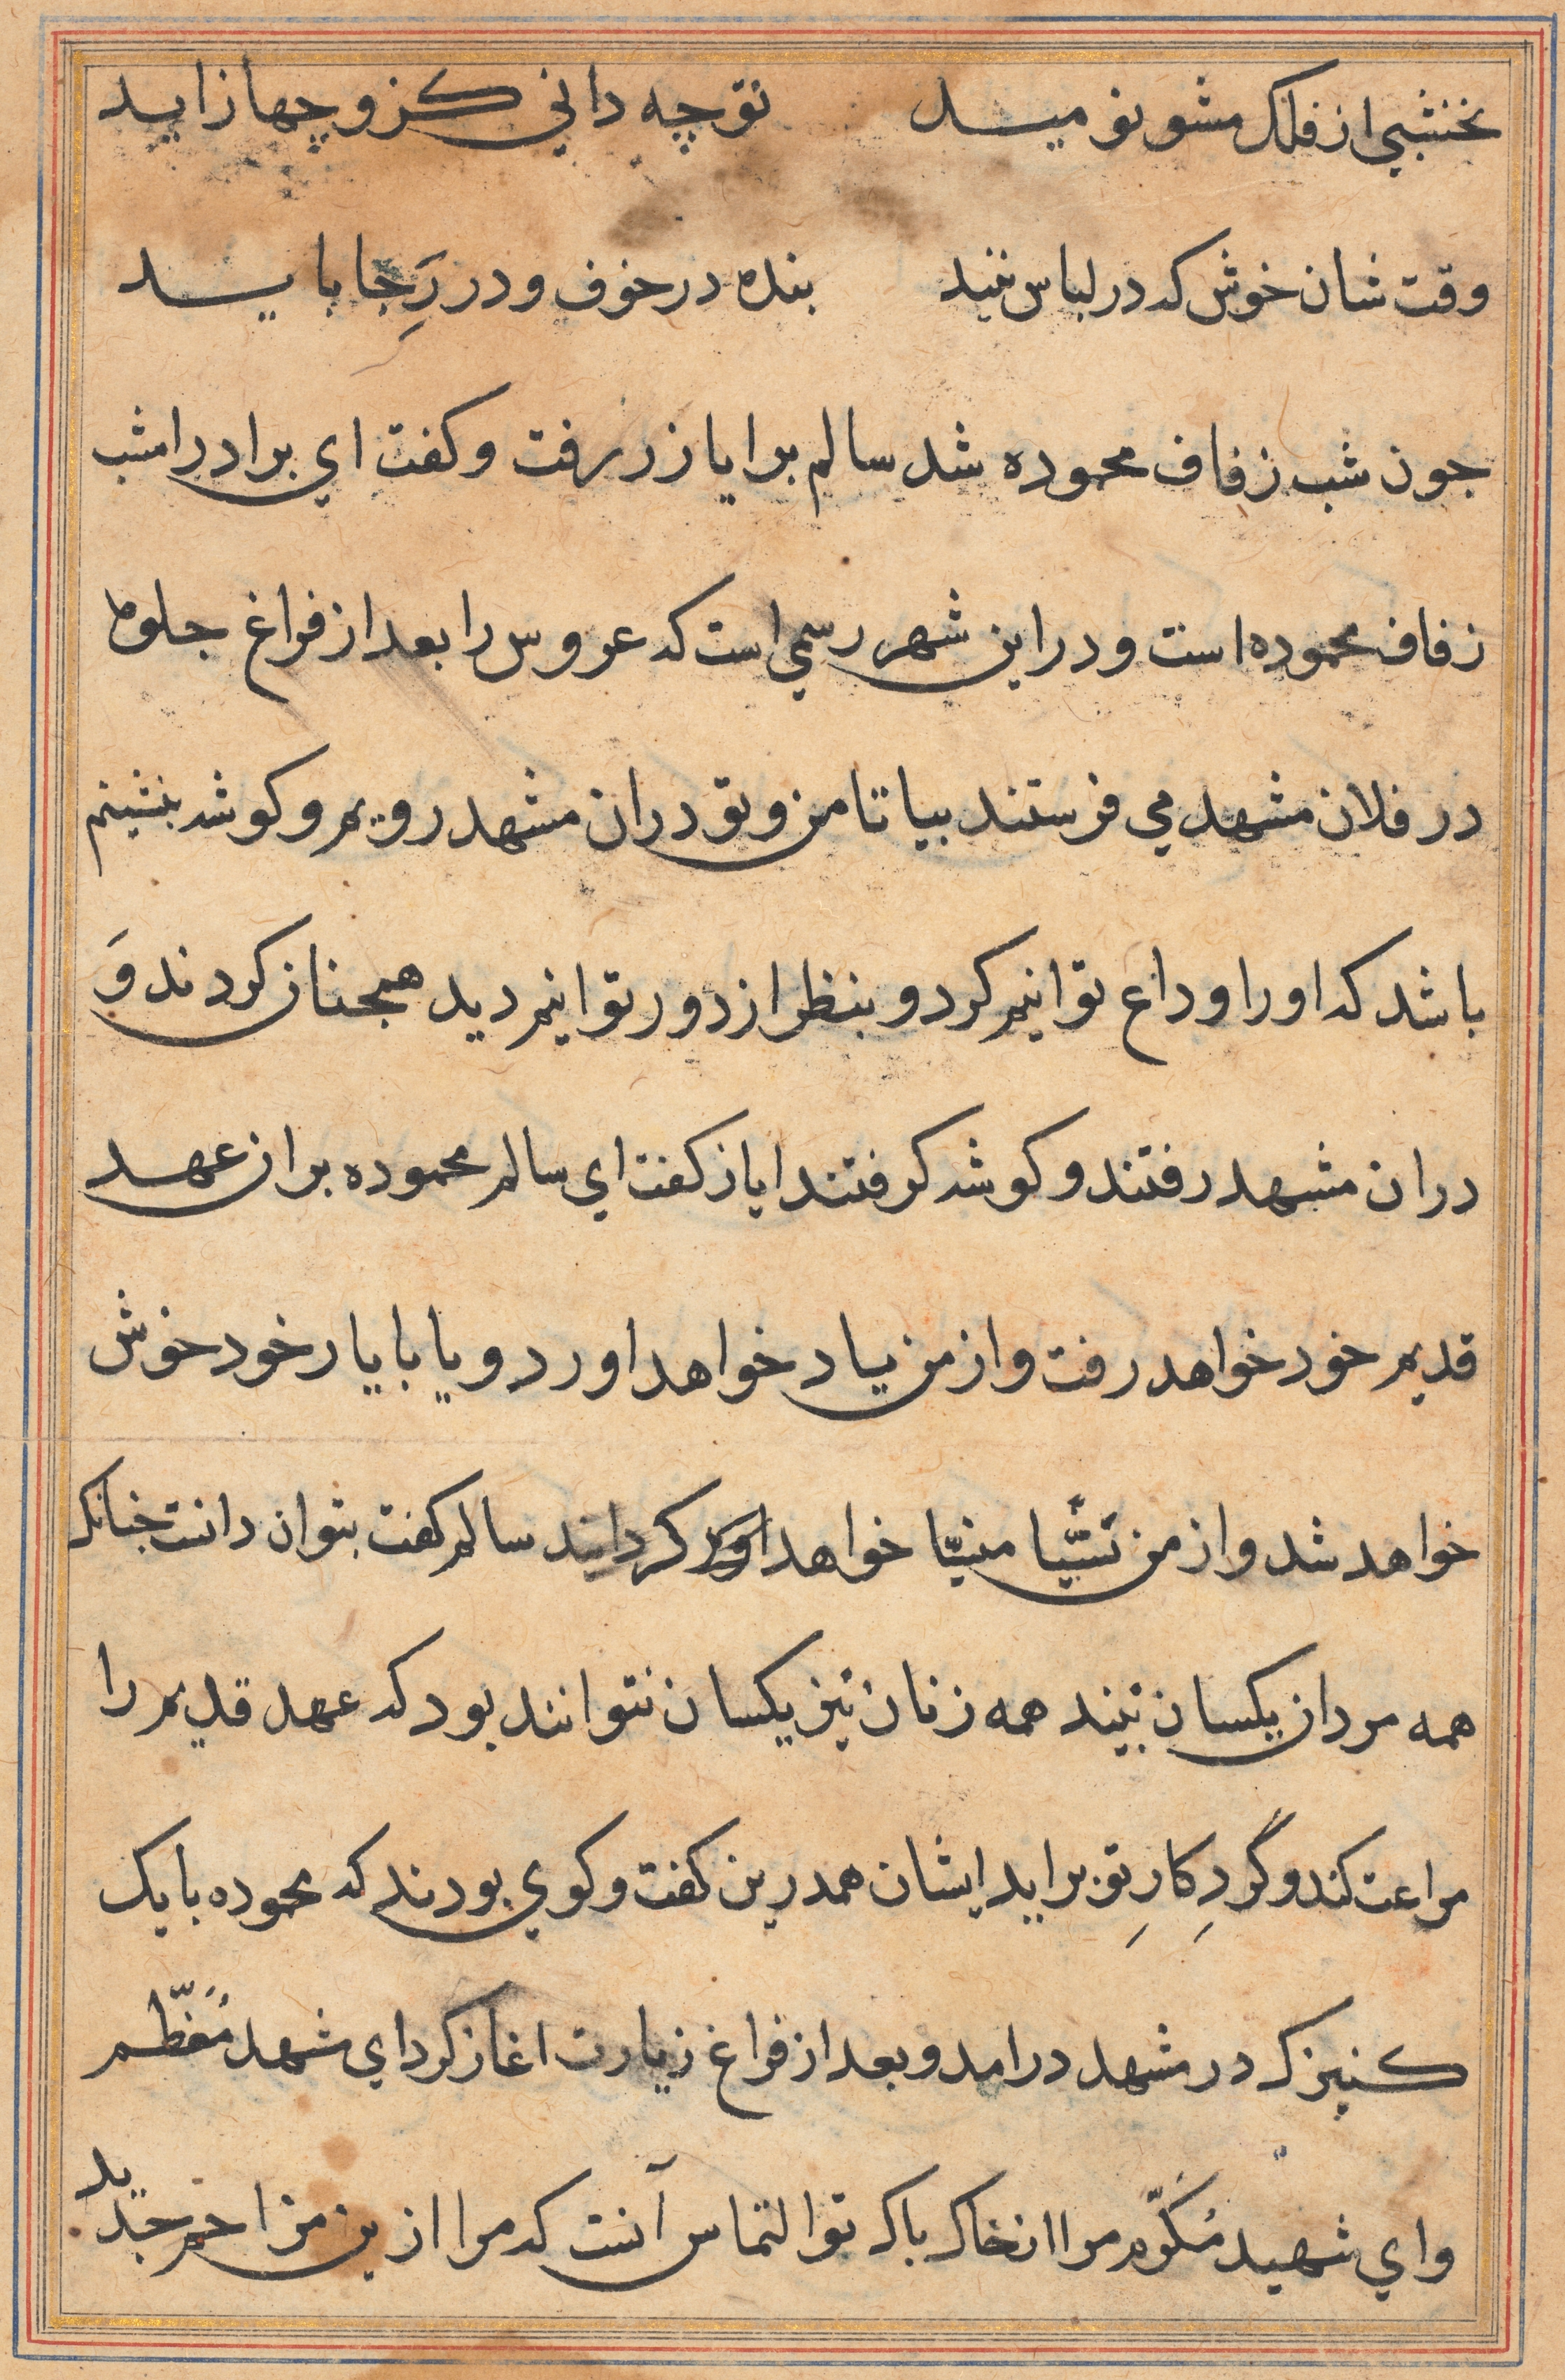 نخشبی از فلک مشو نومید توچه دانی کزو چها زاید
وقت شان خوش که در لباس نیند بنده در خوف و در رَجا باید
جون شب زفاف محموده شد سالم برایاز زر رفت و کفت ای برادر امشب
زفاف محموده است و در این شهر رسمی است که عروس را بعد از فراغ جلوه
در فلان مشهد می فرستند بیا تا من و تو دران مشهد رویم و کوشه بنشینم
باشد که اورا وداع توانیم کرد و بنظر از دور توانیم دید همجنان کردند وَ
دران مشهد رفتند و کوشه کرفتند ایاز کفت ای سالم محموده بران عهد
قدیم خود خواهد رفت و از من یاد خواهد اورد و یا با یار خود خوش
خواهد شد و از من نسّیا منیّا خواهد کردانید سالم کفت بتوان دانت جنانکه
همه مردان یکسان نیند همه زنان نیز یکسان نتوانند بود که عهد قدیم را
مراعت کند و گردِ کارِ تو براید ایشان همدرین کفت و کوی بودند که محموده با یک
کنیزک در مشهد درامد و بعد از فراغ زیارت اغاز کرد ای مشهد مُعَظّم
و ای شهید مُکَرّم مرا ازخاک باک تو التماس آنت که مرا ازین مزاحم جدید